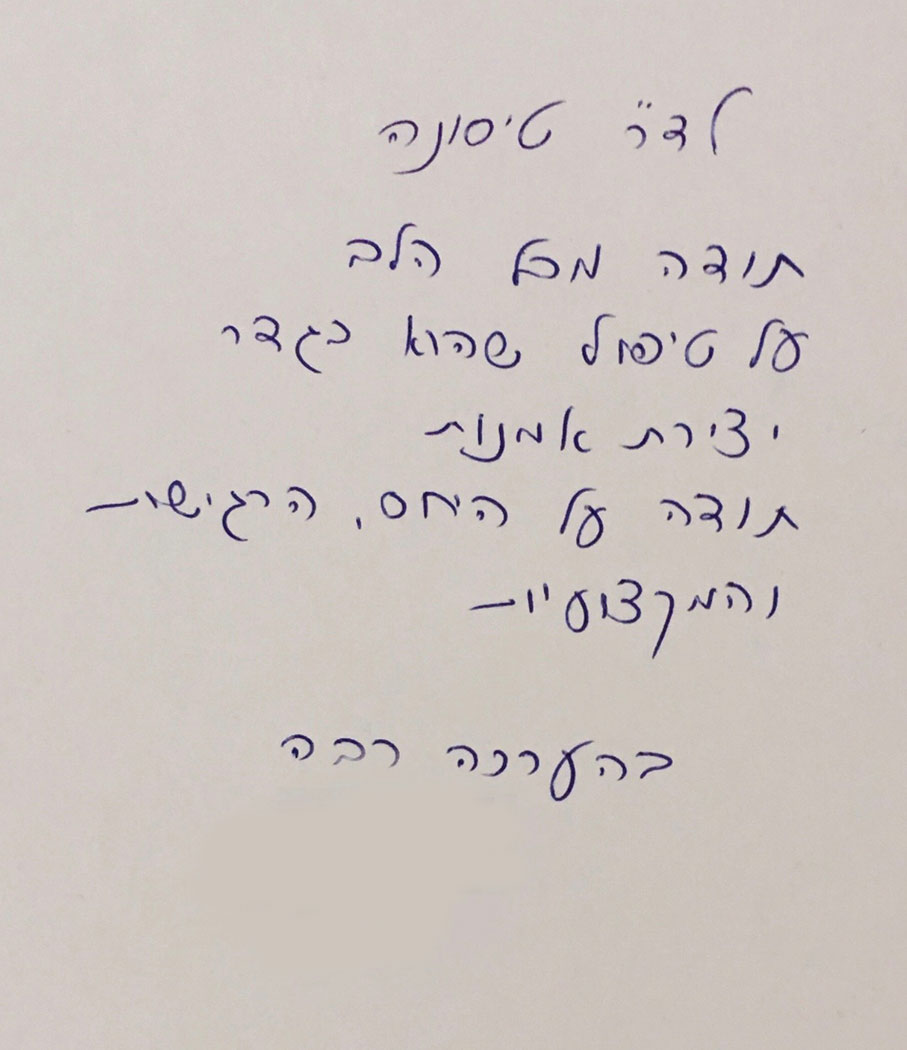 לד״ר טיסונה
תודה מכל הלב
על טיפול שהוא בגדר
יצירת אמנות
תודה על היחס, הרגישות
והמקצועיות
בהערכה רבה